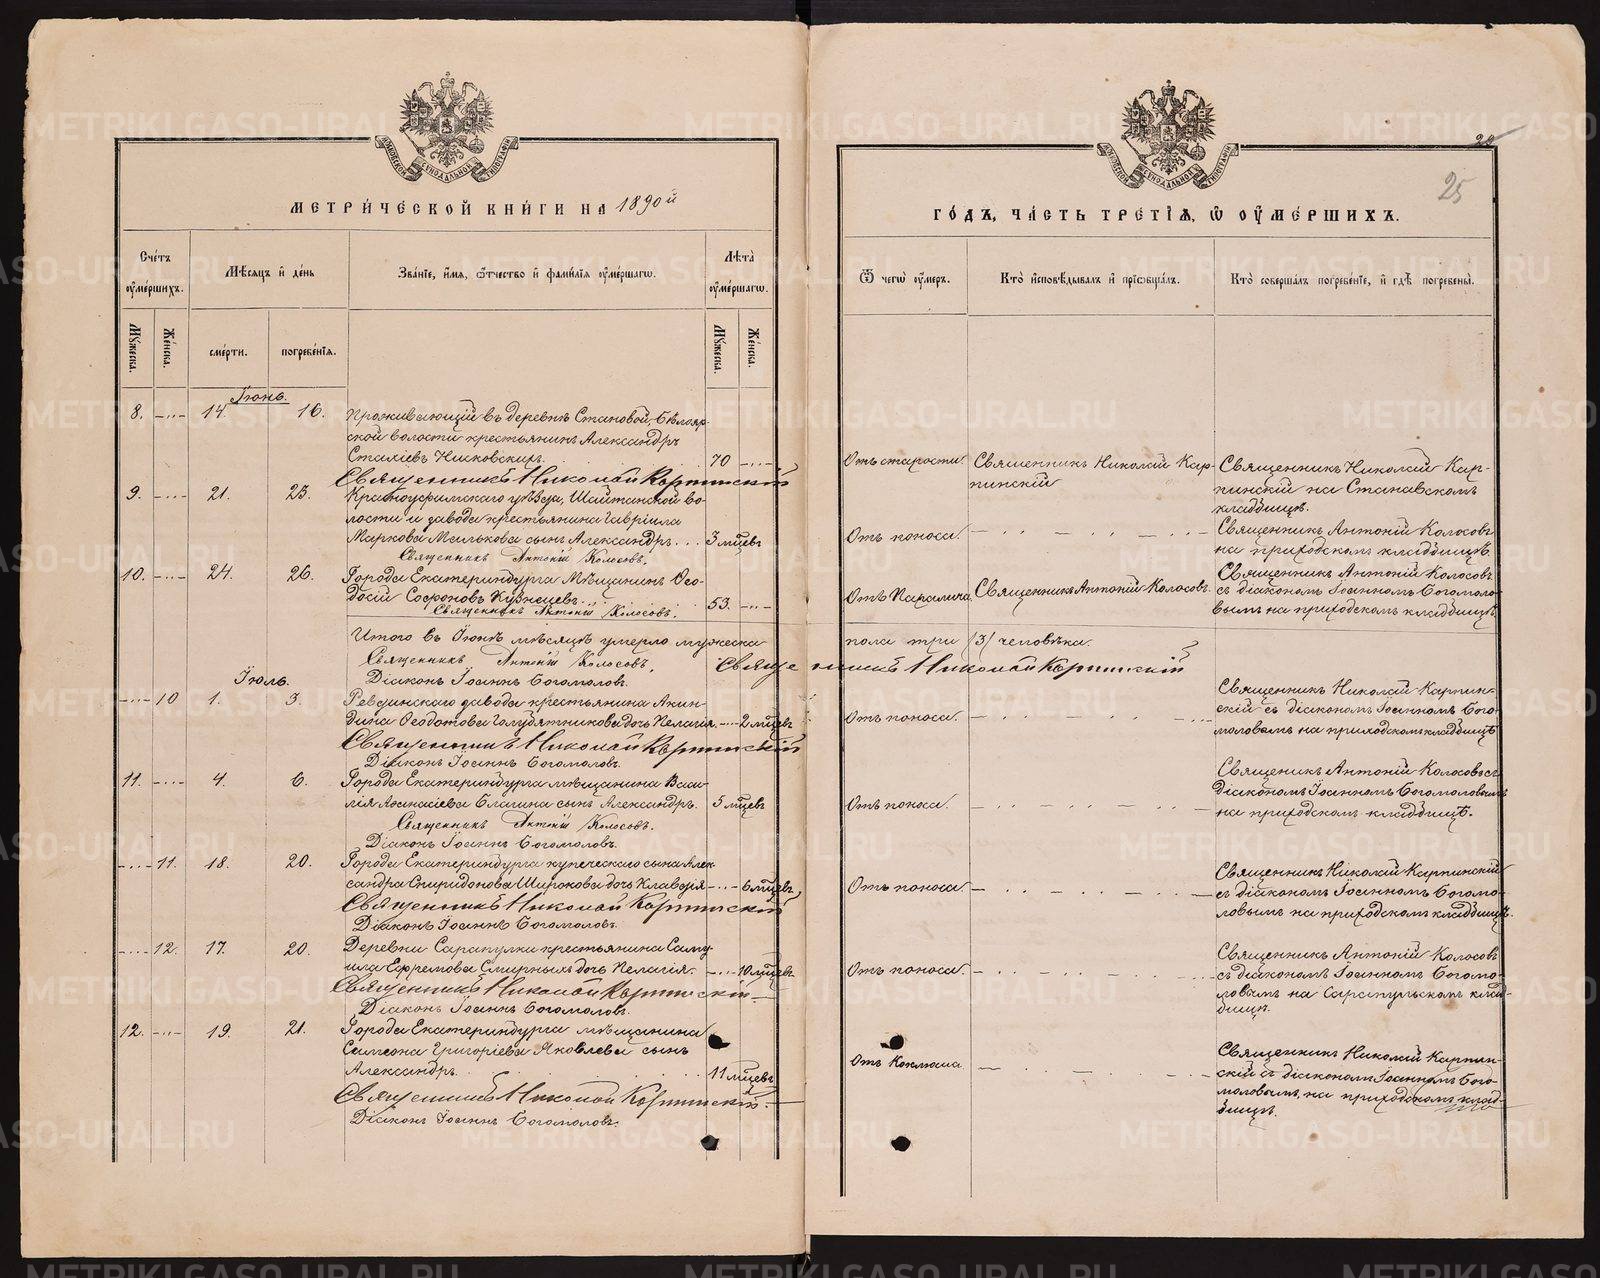 МЕТРИ́ЧЕСКОЙ КНИ́ГИ НА 1890й
Сче́тъ оу҆ме́ршихъ.
Мѣ́сяцъ и҆ де́нь
Зва́нїе, и҆́мя, ѻ҆́тчество и҆ фами́лїя оу҆ме́ршагѡ.
Лѣ́та оу҆ме́ршагѡ.
Мꙋ́жеска.
Же́нска.
сме́рти.
погребе́нїя.
Мꙋ́жеска.
Же́нска.
Іюнь.
8. -..- 14. 16. Проживающій въ деревнѣ Становой, Бѣлояр-
ской волости крестьянинъ Александръ
Стахіевъ 70 -..-
Священникъ Николай Карпинскій
9. -..- 21. 23. Красноуфимскаго уѣзда, Шайтанской во-
лости и завода крестьянина Гавріила
Маркова Милькова сынъ Александръ... 3 мцевъ
Священникъ Антоній Колосовъ.
10. -..- 24. 26. Города Екатеринбурга Мѣщанинъ Ѳео-
досій Софроновъ Кузнецовъ... 53. -..-
Священникъ Антоній Колосовъ.
Итого въ Іюнѣ мѣсяцѣ умерло мужеска
Священникъ Антоній Колосовъ.
Діаконъ Іоаннъ Богомоловъ.
Іюль.
-..- 10 1. 3. Ревдинскаго завода крестьянина Акин-
дина Ѳеодотова Голубятникова дочь Пелагія. -..- 2 мцевъ
Священникъ Николай Карпинскій
Діаконъ Іоаннъ Богомоловъ.
11. -..- 4. 6. Города Екатеринбурга мѣщанина Васи-
лія Аѳанасіева Благина сынъ Александръ. 5 мцевъ
Священникъ Антоній Колосовъ.
Діаконъ Іоаннъ Богомоловъ.
-..- 11. 18. 20. Города Екатеринбурга купеческаго сына Алек-
сандра Спиридонова Широкова дочь Клавдія -..- 6 мцевъ
Священникъ Николай Карпинскій
Діаконъ Іоаннъ Богомоловъ.
-..- 12. 17. 20. Деревни Сарапулки крестьянина Саму-
ила Ефремова Смирныхъ дочь Пелагія. -..- 10 мцевъ
Священникъ Николай Карпинскій
Діаконъ Іоаннъ Богомоловъ.
12. -..- 19. 21. Города Екатеринбурга мѣщанина
Симеона Григоріева Яковлева сынъ
Александръ. 11 мцевъ
Священникъ Николай Карпинскій.
Діаконъ Іоаннъ Богомоловъ.
25
ГО́ДЪ, ЧА́СТЬ ТРЕ́ТІЯ, Ѡ҆ ОУ҆МЕ́РШИХЪ.
Ѿ чегѡ̀ оу҆́меръ.
Кто̀ и҆сповѣ́дывалъ и҆ прїѡбща́лъ.
Кто̀ соверша́лъ погребе́нїе, и҆ гдѣ̀ погребены̀.
Отъ старости. Священникъ Николай Кар-
пинскій
Священникъ Николай Кар-
пинскій на Становскомъ
кладбищѣ.
Отъ поноса. Священникъ Антоній Колосовъ
на приходскомъ кладбищѣ.
Отъ Паралича. Священникъ Антоній Колосовъ.
Священникъ Антоній Колосовъ
съ діакономъ Іоанномъ Богомоло-
вымъ на приходскомъ кладбищѣ.
пола три (3) человѣка.
Священникъ Николай Карпинскій
Отъ поноса. Священникъ Николай Карпин-
скій съ діакономъ Іоанномъ Бого-
моловымъ на приходскомъ кладбищѣ
Отъ поноса. Священикъ Антоній Колосовъ съ
Діакономъ Іоанномъ Богомоловымъ
на приходскомъ кладбищѣ.
Отъ поноса. Священникъ Николай Карпинскій
съ діакономъ Іоанномъ Богомо-
ловымъ на приходскомъ кладбищѣ.
Отъ поноса. Священникъ Антоній Колосовъ
съ діакономъ Іоанномъ Богомо-
ловымъ на Сарапульскомъ клад-
бищѣ.
Отъ Коклюша Священникъ Николай Карпин-
скій съ діакономъ Іоанномъ Бого-
моловымъ, на приходскомъ клад-
бищѣ.
METRIKI.GASO-URAL.RU